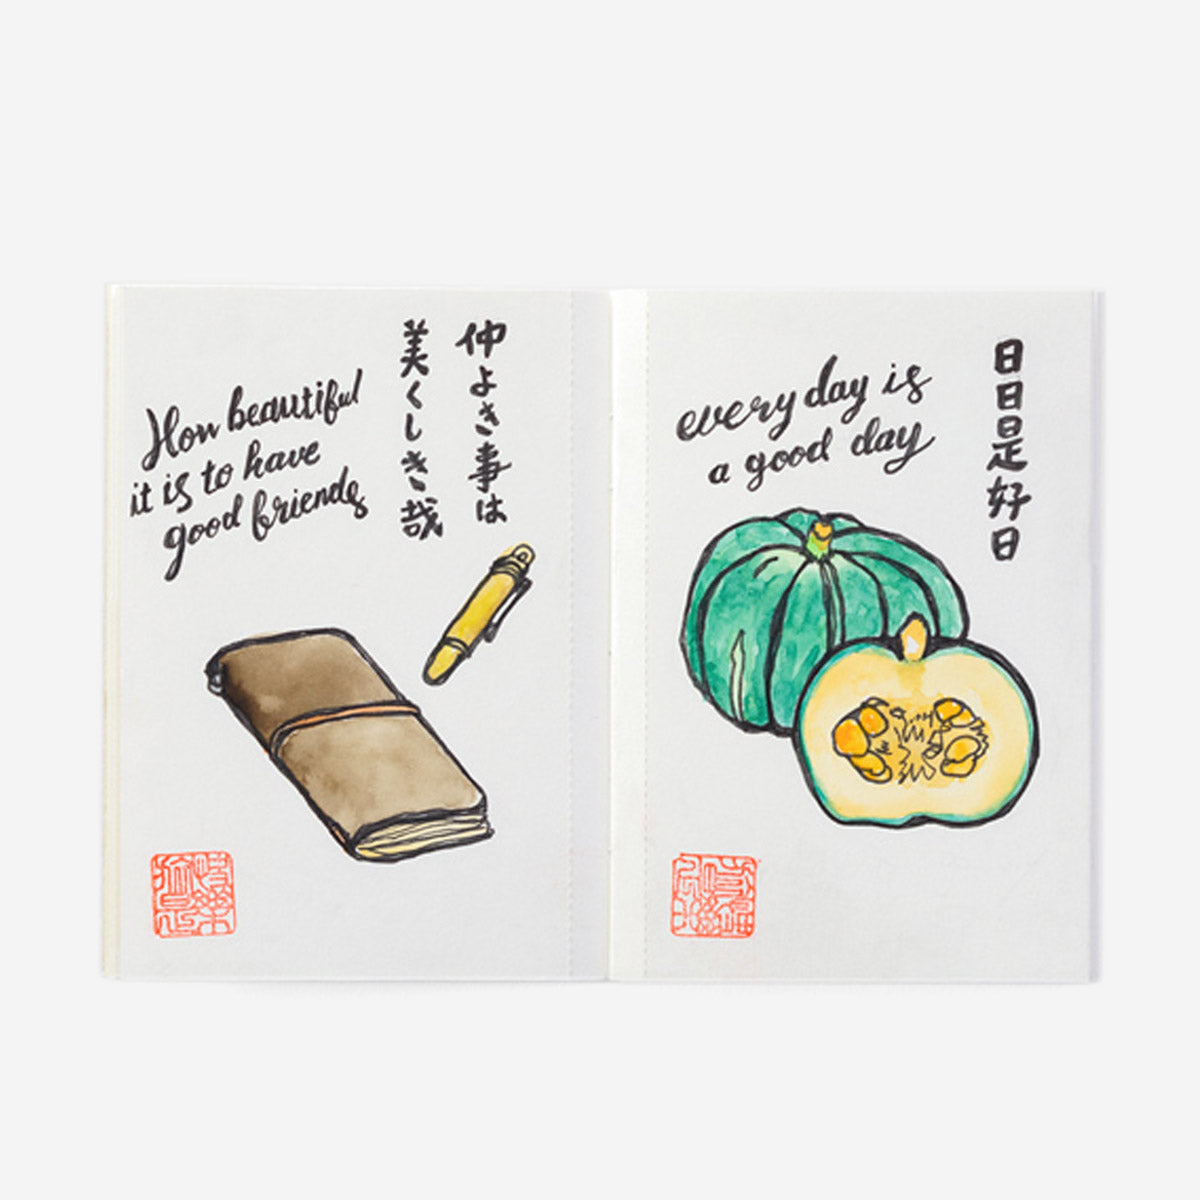 How beautiful
it is to have
good friends
仲よき事は
美しくしき哉
every day is
a good day
日日是好日